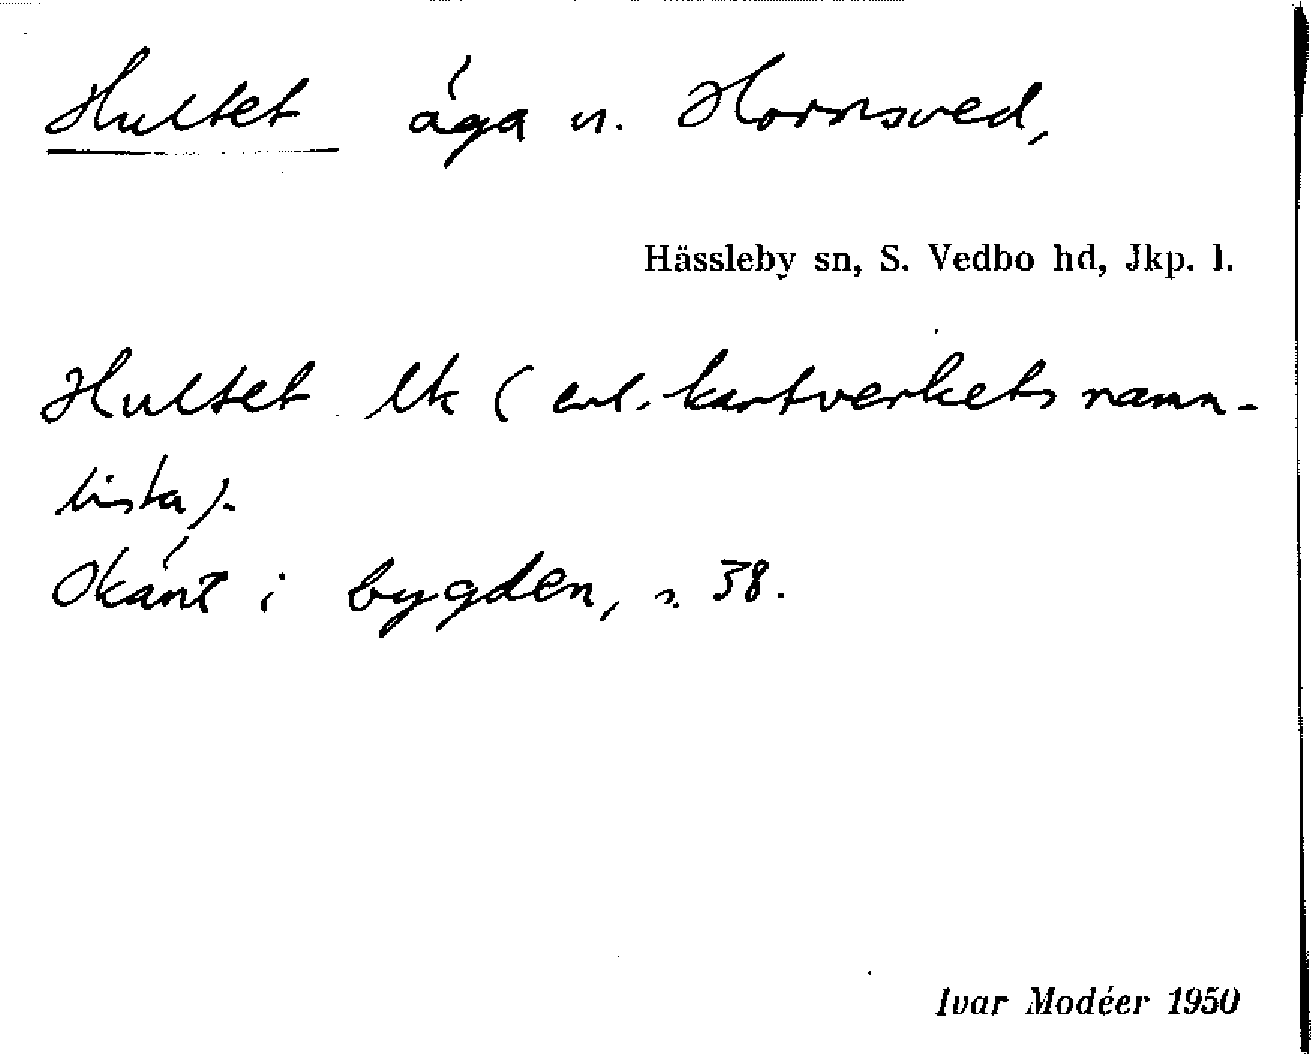 Hultet äga u. Hornsved,
Hässleby sn, S. Vedbo hd, Jkp. l.
Hultet lk (enl. kartverkets namn-
lista).
Okänt i bygden, s. 38.
Ivar Modéer 1950